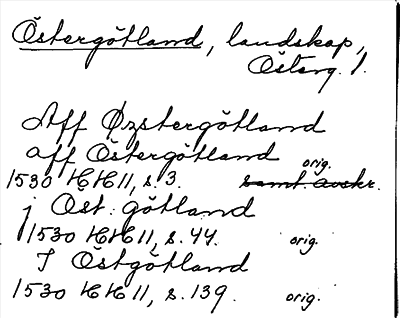 Östergötland, landskap,
Österg. l.
Aff Øzstergötland
aff Östergötland
orig.
1530 HH 11, s. 3. samt. avskr.
j Ost: götland
1530 HH 11, s. 44. orig.
I Östgötland
1530 HH 11, s. 139. orig.